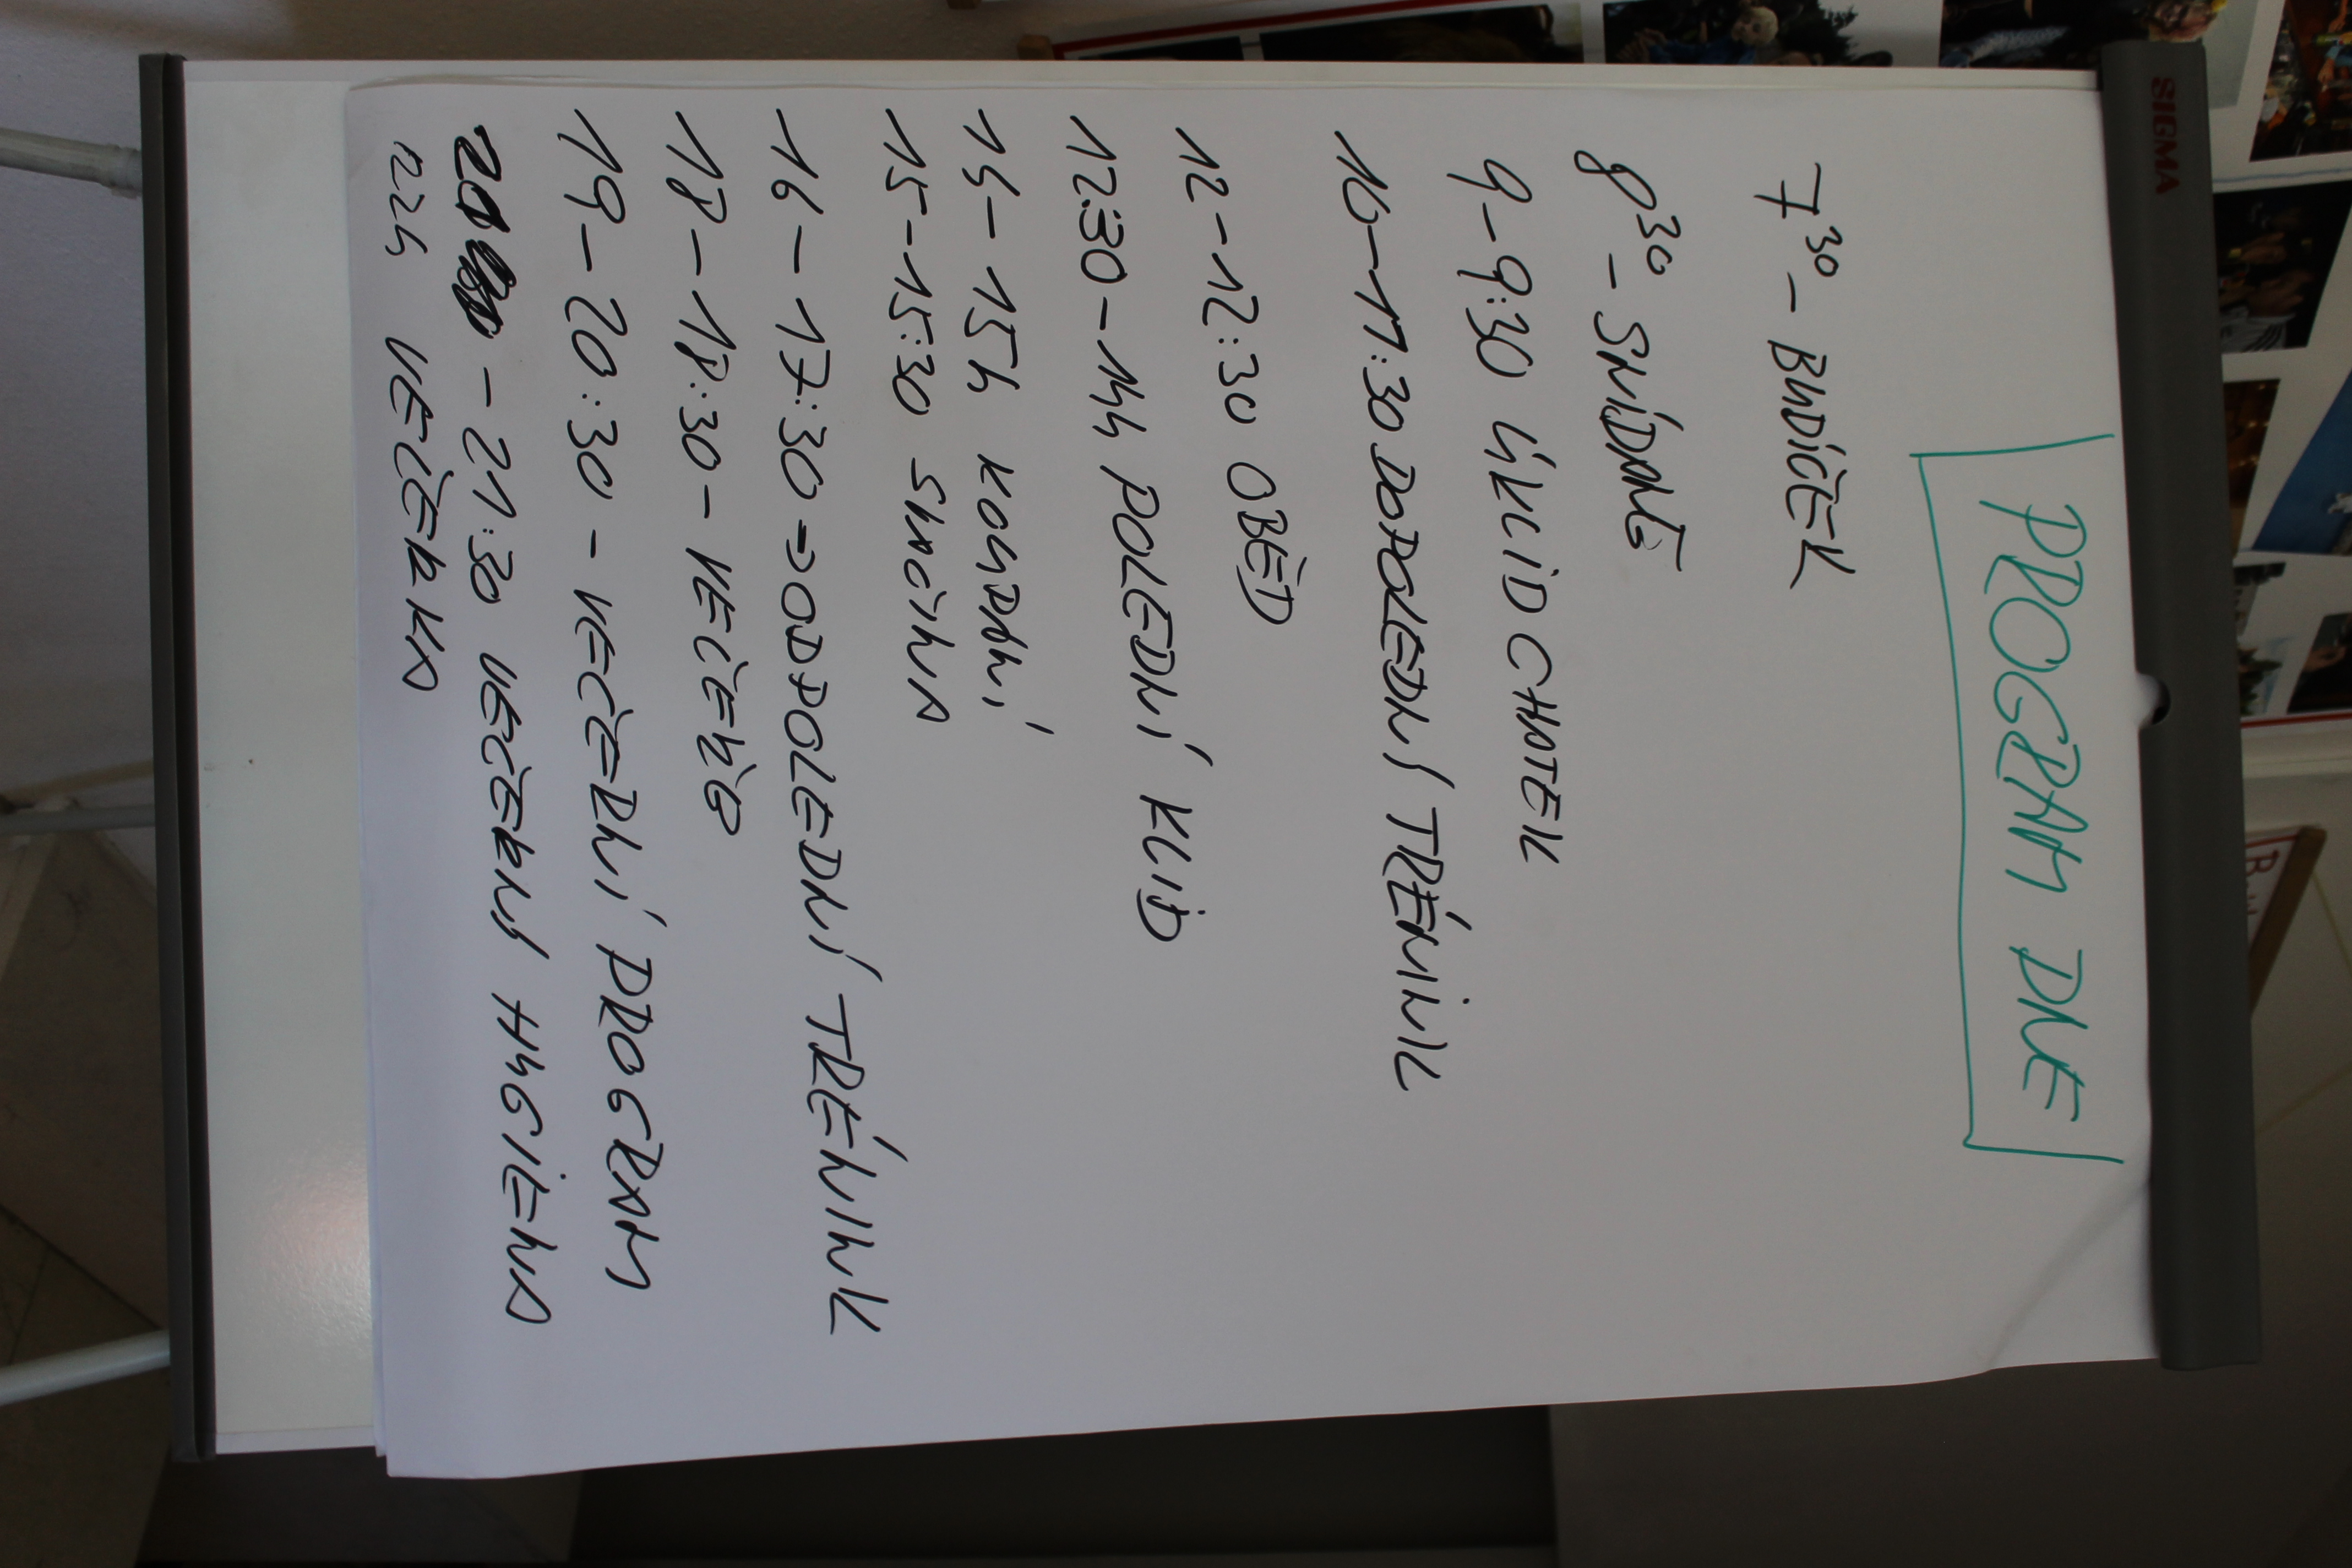 SIGMA
PROGRAM DNE
7³⁰ - BUDÍČEK
8³⁰ - SNÍDANĚ
9-9:30 ÚKLID CHATEK
10-11:30 DOPOLEDNÍ TRÉNINK
12-12:30 OBĚD
12:30-14h POLEDNÍ KLID
14-15h KOUPÁNÍ
15-15:30 SVAČINA
16-17:30 => ODPOLEDNÍ TRÉNINK
18-18:30 - VEČEŘE
19-20:30 - VEČERNÍ PROGRAM
- 21:30 VEČERNÍ HYGIENA
22h VEČERKA